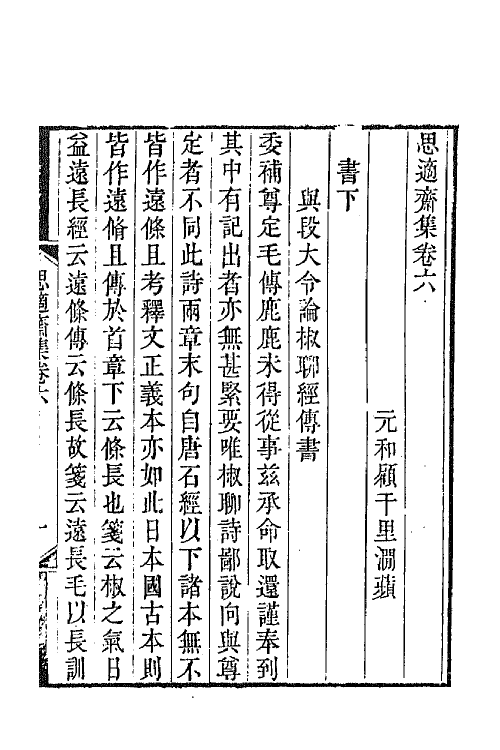 思適齋集卷六
元和顧千里澗蘋
書下
與段大令論椒聊經傳書
委補尊定毛傳鹿鹿未得從事茲承命取還謹奉到
其中有記出者亦無甚緊要唯椒聊詩鄙說向與尊
定者不同此詩兩章末句自唐石經以下諸本無不
皆作遠條且考釋文正義本亦如此日本國古本則
皆作遠脩且傳於首章下云條長也箋云椒之氣日
益遠長經云遠條傳云條長故箋云遠長毛以長訓
思適齋集卷六
一